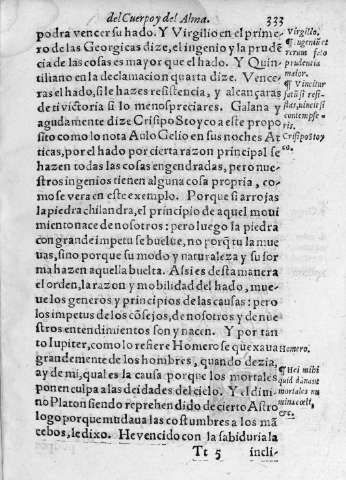 del Cuerpo y del Alma. 333
podra vencer su hado. Y Virgilio en el prime-
ro de las Georgicas dize, el ingenio y la prudẽ
cia de las cosas es mayor que el hado. Y Quin-
tiliano en la declamacion quarta dize. Vence-
ras el hado, si le hazes resistencia, y alcançaras
de ti victoria si lo menospreciares. Galana y
agudamente dize Crisipo Stoyco a este propo
sito como lo nota Aulo Gelio en sus noches At
ticas, por el hado por cierta razon principal se
hazen todas las cosas engendradas, pero nue-
stros ingenios tienen alguna cosa propria, co-
mo se vera en este exemplo. Porque si arrojas
la piedra chilandra, el principio de aquel movi
miento nace de nosotros: pero luego la piedra
con grande impetu se buelue, no porq̃ tu la mue
uas, sino porque su modo y naturaleza y su for
ma hazen aquella buelta. Assi es desta manera
el orden, la razon y mobilidad del hado, mue-
ue los generos y principios de las causas: pero
los impetus de los cõsejos, de nosotros y de nue
stros entendimientos son y nacen. Y por tan
to Iupiter, como lo refiere Homero se quexaua
grandemente de los hombres, quando dezia,
ay de mi, qual es la causa porque los mortales
ponen culpa a las deidades del cielo. Y el diui-
no Platon siendo reprehendido de cierto Astro
logo porque mudaua las costumbres a los mã
cebos, le dixo. He vencido con la sabiduria la
Tt 5 incli-
Virgilio.
¶ Ingeniũ et
rerum fato
prudencia
maior.
¶ Vincitur
fatũ si resi-
stas, vincit si
contempse-
ris.
Crisipo Stoy
co.
Homero.
¶ Hei mihi
quid dãnant
mortales nu
mina cœli,
&c.